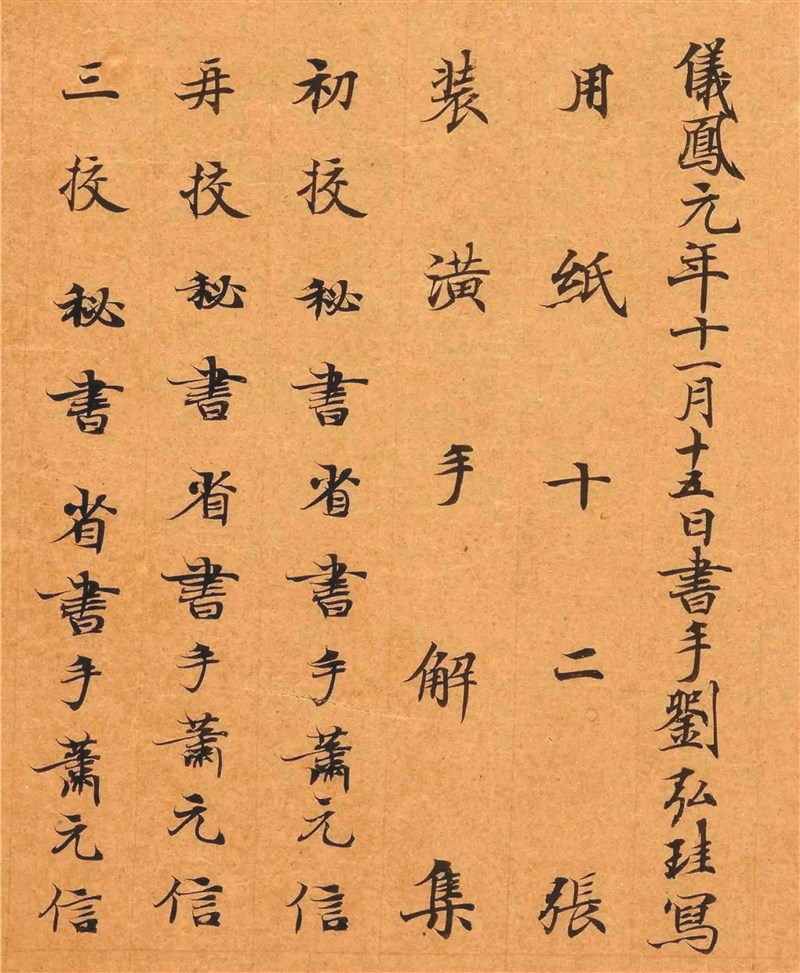 儀鳳元年十一月十五日書手劉弘珪寫
用紙十二張
裝潢手解集
初挍秘書省書手蕭元信
再挍秘書省書手蕭元信
三挍秘書省書手蕭元信